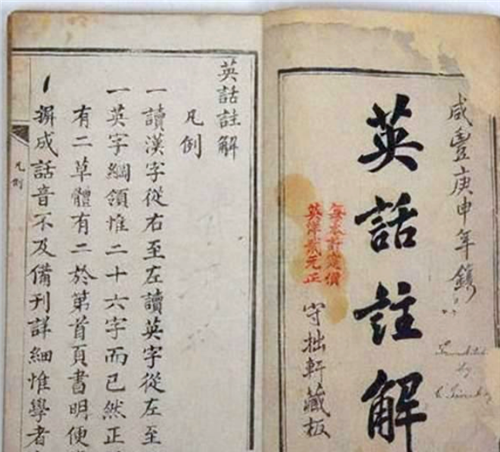 咸豐庚申年鐫
英話註解
每本計定價
英洋貳元正
守拙軒藏板
英話註解
凡例
一讀漢字從右至左讀英字從左至
一英字綱領惟二十六字而已然正
有二草體有二於第首頁書明便
一成話音不及備刊詳細惟學者
凡例